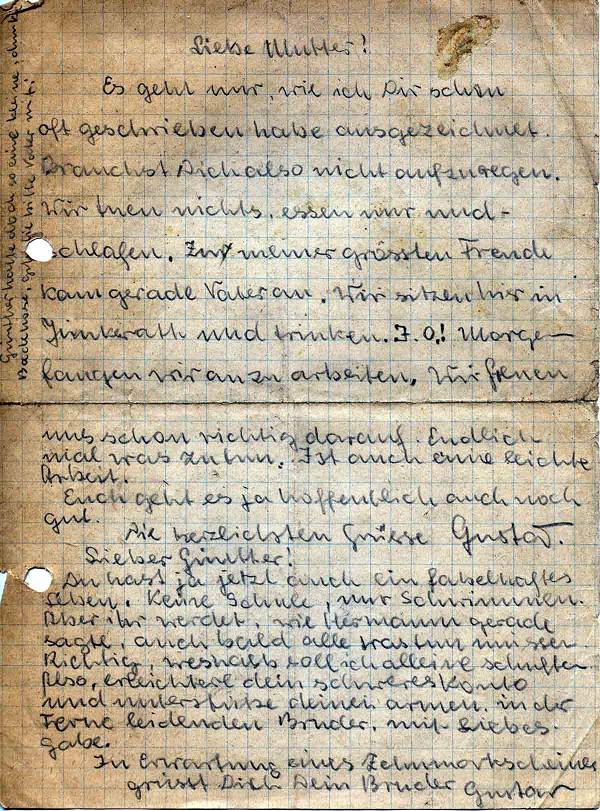 Liebe Mutter!
Es geht mir, wie ich Dir schon
oft geschrieben habe ausgezeichnet.
Brauchst Dich also nicht aufzuregen.
Wir tuen nichts, essen nur und
schlafen. Zur meiner grössten Freude
kam gerade Vater an. Wir sitzen hier in
Jünkerath und trinken. J.O.! Morgen
fangen wir an zu arbeiten. Wir freuen
uns schon richtig darauf. Endlich
mal was zu tun. Ist auch eine leichte
Arbeit.
Euch geht es ja hoffentlich auch noch
gut.
Die herzlichsten Grüsse Gustav.
Lieber Günther!
Du hast ja jetzt auch ein fabelhaftes
Leben. Keine Schule, nur Schwimmen.
Aber ihr werdet, wie Hermann gerade
sagte, auch bald alle was tun müssen.
Richtig, weshalb soll ich alleine schuften.
Also, erleichtere dein schweres Konto
und unterstütze deinen armen in der
Ferne leidenden Bruder, mit Liebes-
gabe.
In Erwartung eines Zehnmarkscheines
grüsst Dich Dein Bruder Gustav
Günther hatte doch so eine kleine, dunkle
Badehose, gib sie bitte Vater mit.